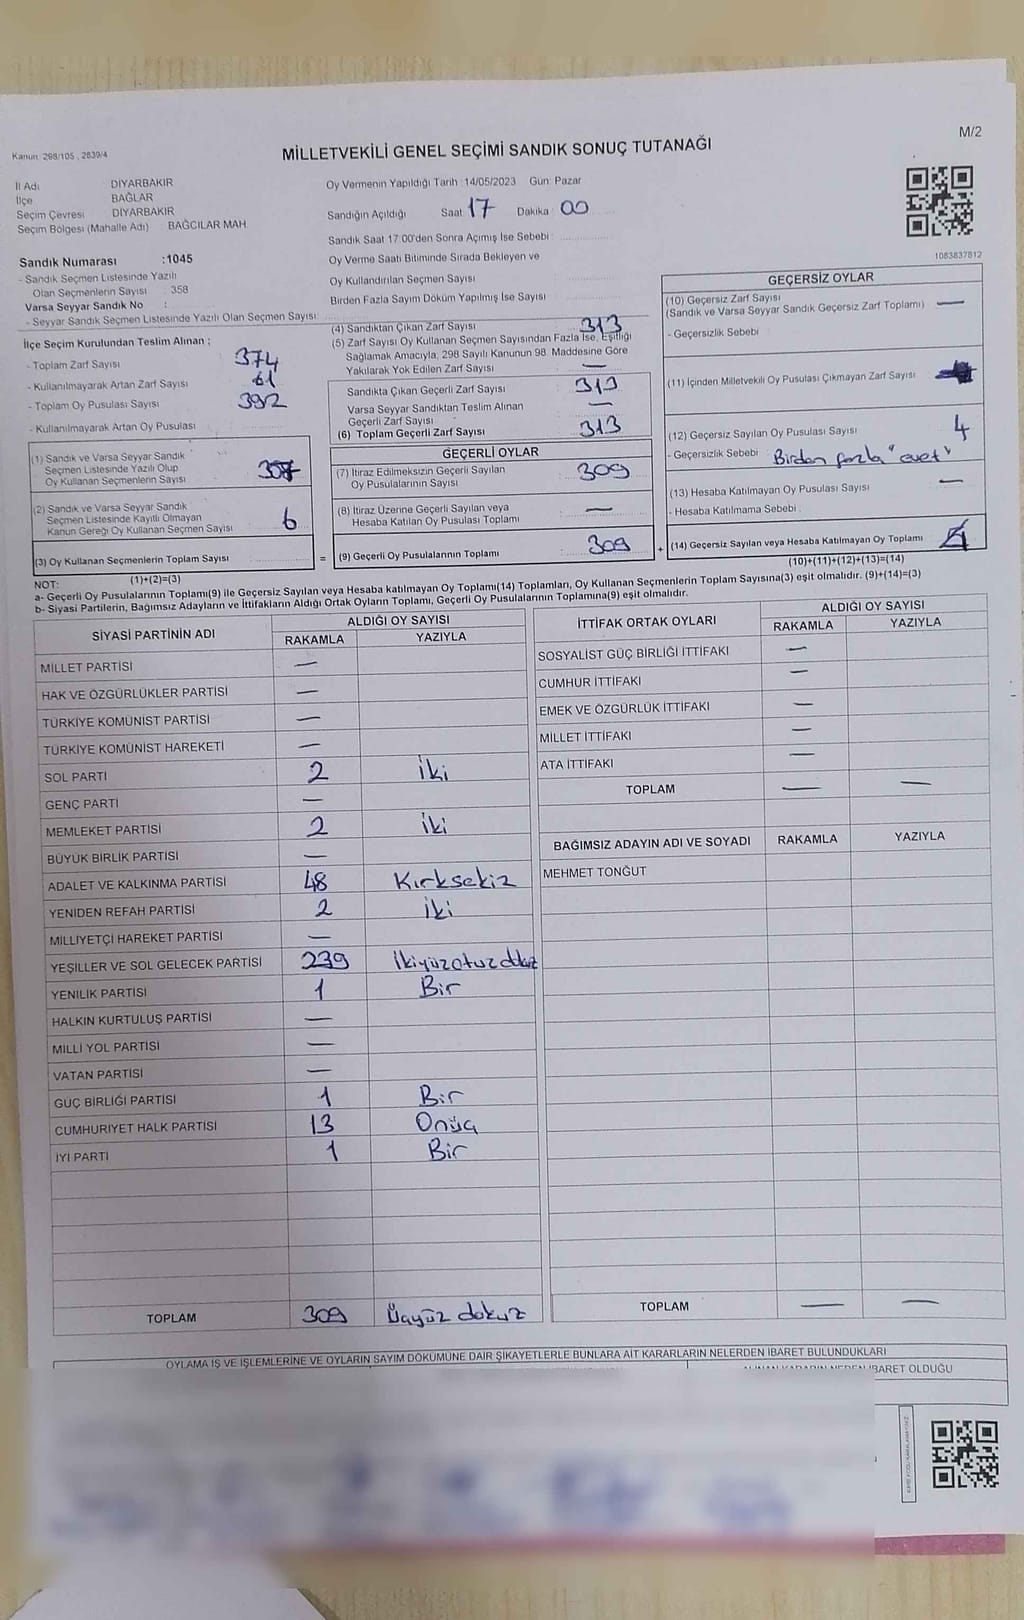 Kanun. 298/105 , 2839/4
M/2
MİLLETVEKİLİ GENEL SEÇİMİ SANDIK SONUÇ TUTANAĞI
İl Adı : DİYARBAKIR
İlçe : BAĞLAR
Seçim Çevresi : DİYARBAKIR
Seçim Bölgesi (Mahalle Adı) : BAĞCILAR MAH.
Sandık Numarası :1045
- Sandık Seçmen Listesinde Yazılı
Olan Seçmenlerin Sayısı : 358
Varsa Seyyar Sandık No :
- Seyyar Sandık Seçmen Listesinde Yazılı Olan Seçmen Sayısı :
Oy Vermenin Yapıldığı Tarih :14/05/2023 Gün: Pazar
Sandığın Açıldığı Saat 17 Dakika 00
Sandık Saat 17:00'den Sonra Açımış İse Sebebi :
Oy Verme Saati Bitiminde Sırada Bekleyen ve
Oy Kullandırılan Seçmen Sayısı :
Birden Fazla Sayım Döküm Yapılmış İse Sayısı :
1083837812
İlçe Seçim Kurulundan Teslim Alınan ;
- Toplam Zarf Sayısı : 374
- Kullanılmayarak Artan Zarf Sayısı : 61
- Toplam Oy Pusulası Sayısı : 392
- Kullanılmayarak Artan Oy Pusulası :
(1) Sandık ve Varsa Seyyar Sandık
Seçmen Listesinde Yazılı Olup
Oy Kullanan Seçmenlerin Sayısı : 307
(2) Sandık ve Varsa Seyyar Sandık
Seçmen Listesinde Kayıtlı Olmayan
Kanun Gereği Oy Kullanan Seçmen Sayısı : 6
(3) Oy Kullanan Seçmenlerin Toplam Sayısı :
(1)+(2)=(3)
(4) Sandıktan Çıkan Zarf Sayısı : 313
(5) Zarf Sayısı Oy Kullanan Seçmen Sayısından Fazla İse, Eşitliği
Sağlamak Amacıyla, 298 Sayılı Kanunun 98. Maddesine Göre
Yakılarak Yok Edilen Zarf Sayısı : —
Sandıkta Çıkan Geçerli Zarf Sayısı : 313
Varsa Seyyar Sandıktan Teslim Alınan
Geçerli Zarf Sayısı : —
(6) Toplam Geçerli Zarf Sayısı : 313
GEÇERLİ OYLAR
(7) İtiraz Edilmeksizin Geçerli Sayılan
Oy Pusulalarının Sayısı : 309
(8) İtiraz Üzerine Geçerli Sayılan veya
Hesaba Katılan Oy Pusulası Toplamı : —
= (9) Geçerli Oy Pusulalarının Toplamı : 309 +
GEÇERSİZ OYLAR
(10) Geçersiz Zarf Sayısı
(Sandık ve Varsa Seyyar Sandık Geçersiz Zarf Toplamı) : —
- Geçersizlik Sebebi :
(11) İçinden Milletvekili Oy Pusulası Çıkmayan Zarf Sayısı :
(12) Geçersiz Sayılan Oy Pusulası Sayısı : 4
- Geçersizlik Sebebi : Birden fazla "evet"
(13) Hesaba Katılmayan Oy Pusulası Sayısı : —
- Hesaba Katılmama Sebebi :
(14) Geçersiz Sayılan veya Hesaba Katılmayan Oy Toplamı : 4
(10)+(11)+(12)+(13)=(14)
NOT:
a- Geçerli Oy Pusulalarının Toplamı(9) ile Geçersiz Sayılan veya Hesaba katılmayan Oy Toplamı(14) Toplamları, Oy Kullanan Seçmenlerin Toplam Sayısına(3) eşit olmalıdır. (9)+(14)=(3)
b- Siyasi Partilerin, Bağımsız Adayların ve İttifakların Aldığı Ortak Oyların Toplamı, Geçerli Oy Pusulalarının Toplamına(9) eşit olmalıdır.
SİYASİ PARTİNİN ADI ALDIĞI OY SAYISI
RAKAMLA YAZIYLA
MİLLET PARTİSİ —
HAK VE ÖZGÜRLÜKLER PARTİSİ —
TÜRKİYE KOMÜNİST PARTİSİ —
TÜRKİYE KOMÜNİST HAREKETİ —
SOL PARTİ 2 İki
GENÇ PARTİ —
MEMLEKET PARTİSİ 2 İki
BÜYÜK BİRLİK PARTİSİ —
ADALET VE KALKINMA PARTİSİ 48 Kırksekiz
YENİDEN REFAH PARTİSİ 2 İki
MİLLİYETÇİ HAREKET PARTİSİ —
YEŞİLLER VE SOL GELECEK PARTİSİ 239 İkiyüzotuzdokuz
YENİLİK PARTİSİ 1 Bir
HALKIN KURTULUŞ PARTİSİ —
MİLLİ YOL PARTİSİ —
VATAN PARTİSİ —
GÜÇ BİRLİĞİ PARTİSİ 1 Bir
CUMHURİYET HALK PARTİSİ 13 Onüç
İYİ PARTİ 1 Bir
TOPLAM 309 Üçyüz dokuz
İTTİFAK ORTAK OYLARI ALDIĞI OY SAYISI
RAKAMLA YAZIYLA
SOSYALİST GÜÇ BİRLİĞİ İTTİFAKI —
CUMHUR İTTİFAKI —
EMEK VE ÖZGÜRLÜK İTTİFAKI —
MİLLET İTTİFAKI —
ATA İTTİFAKI —
TOPLAM — —
BAĞIMSIZ ADAYIN ADI VE SOYADI RAKAMLA YAZIYLA
MEHMET TONĞUT
TOPLAM — —
OYLAMA İŞ VE İŞLEMLERİNE VE OYLARIN SAYIM DÖKÜMÜNE DAİR ŞİKAYETLERLE BUNLARA AİT KARARLARIN NELERDEN İBARET BULUNDUKLARI
İBARET OLDUĞU